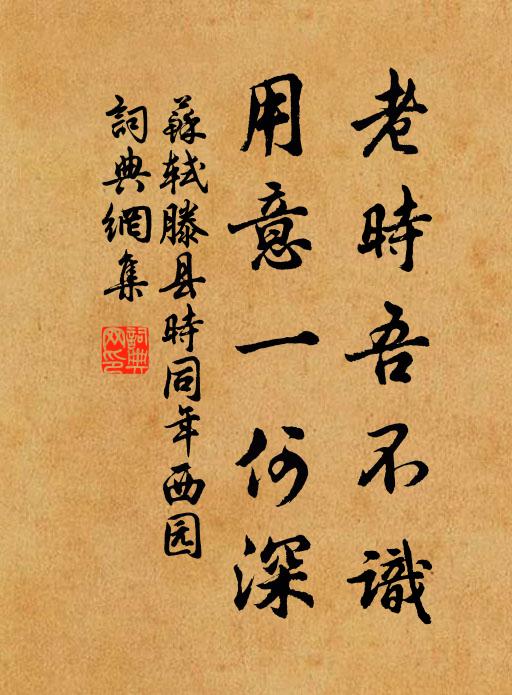 老時吾不識
用意一何深
蘇轼滕县時同年西园
詞典網集
詞典網印